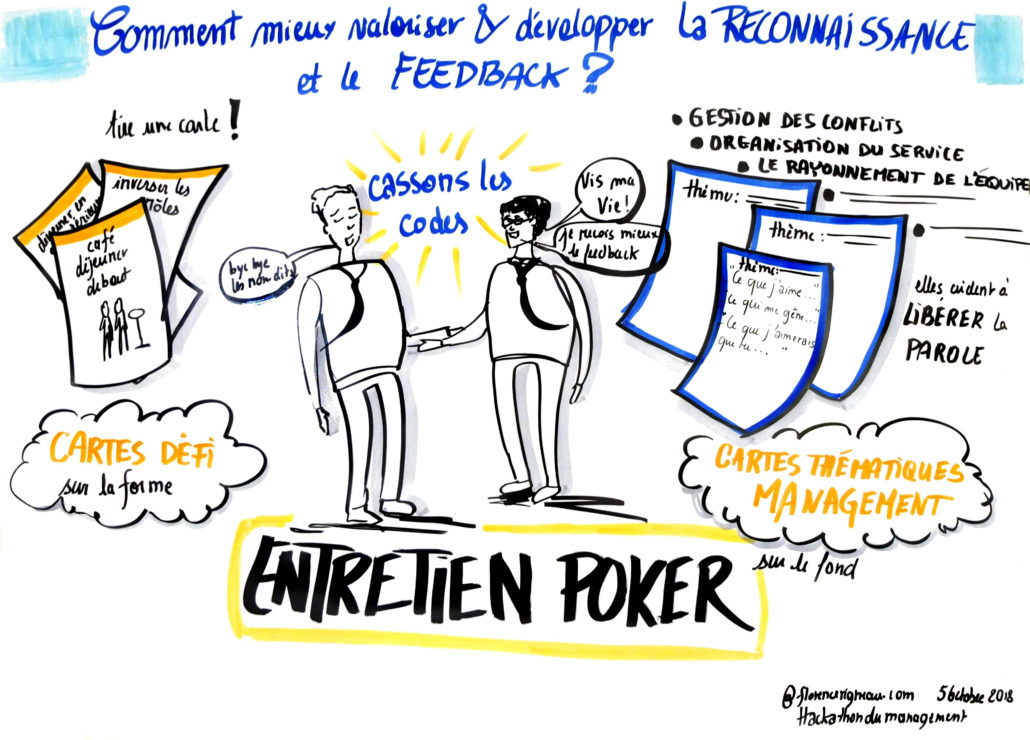 Comment mieux valoriser & développer la RECONNAISSANCE
et le FEEDBACK ?
tire une carte !
inverser les
rôles
déjeuner en
café
déjeuner
debout
CARTES DÉFI
sur la forme
cassons les
codes
bye bye
les non dits
Vis ma
Vie !
Je reçois mieux
le feedback
• GESTION DES CONFLITS
• ORGANISATION DU SERVICE
• LE RAYONNEMENT DE L'ÉQUIPE
thème :
thème :
thème :
"Ce que j'aime ...
Ce qui me gêne...
"Ce que j'aimerais
que tu ... "
elles aident à
LIBÉRER la
PAROLE
CARTES THÉMATIQUES
MANAGEMENT
sur le fond
ENTRETIEN POKER
@florencerigneau.com 5 Octobre 2018
Hackathon du management